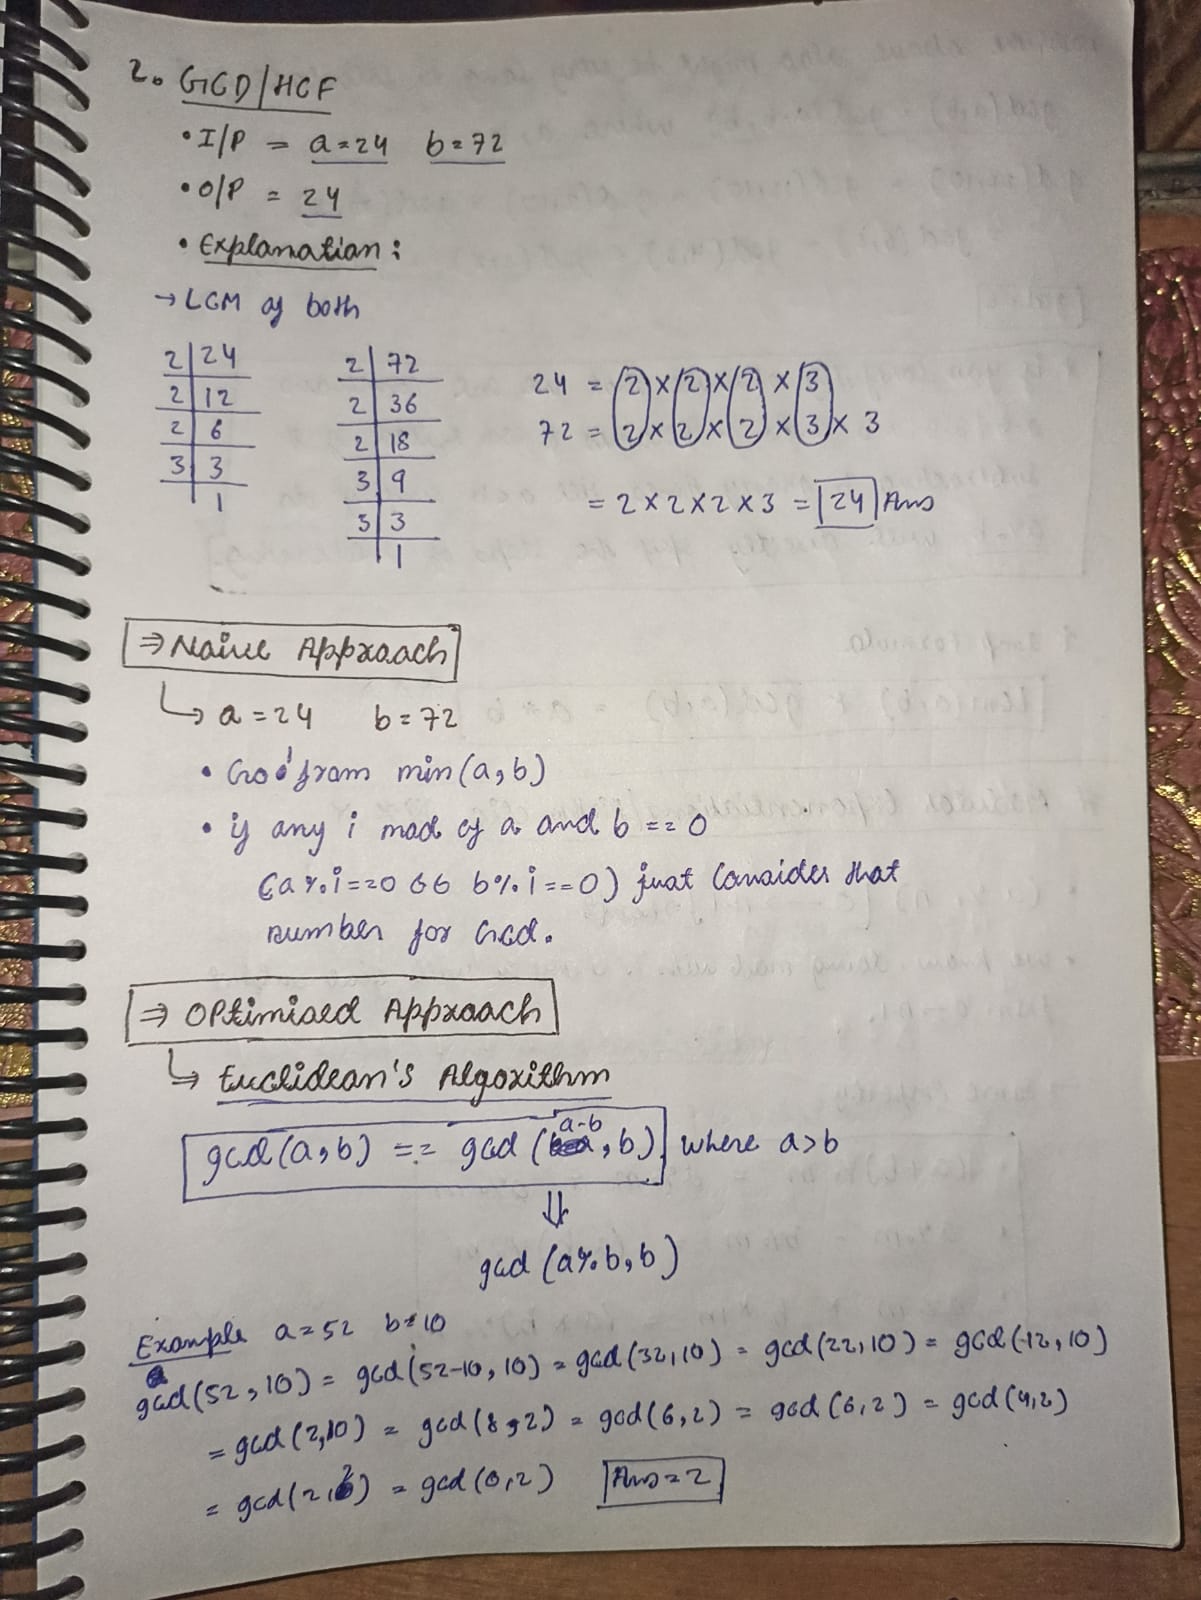 2. GCD/HCF
• I/P = a=24 b=72
• O/P = 24
• Explanation:
→ LCM of both
2 24
2 12
2 6
3 3
1
2 72
2 36
2 18
3 9
3 3
1
24 = 2 × 2 × 2 × 3
72 = 2 × 2 × 2 × 3 × 3
= 2 × 2 × 2 × 3 = 24 Ans
⇒ Naive Approach
↳ a = 24 b = 72
• Go from min(a,b)
• if any i mod of a and b == 0
(a%i==0 && b%i==0) just Consider that
number for Gcd.
⇒ OPtimised Approach
↳ Euclidean's Algorithm
gcd(a,b) == gcd(a-b,b) where a>b
⇓
gcd(a%b,b)
Example a=52 b=10
gcd(52,10) = gcd(52-10,10) = gcd(32,10) = gcd(22,10) = gcd(12,10)
= gcd(2,10) = gcd(8,2) = gcd(6,2) = gcd(6,2) = gcd(4,2)
= gcd(2,2) = gcd(0,2) Ans = 2